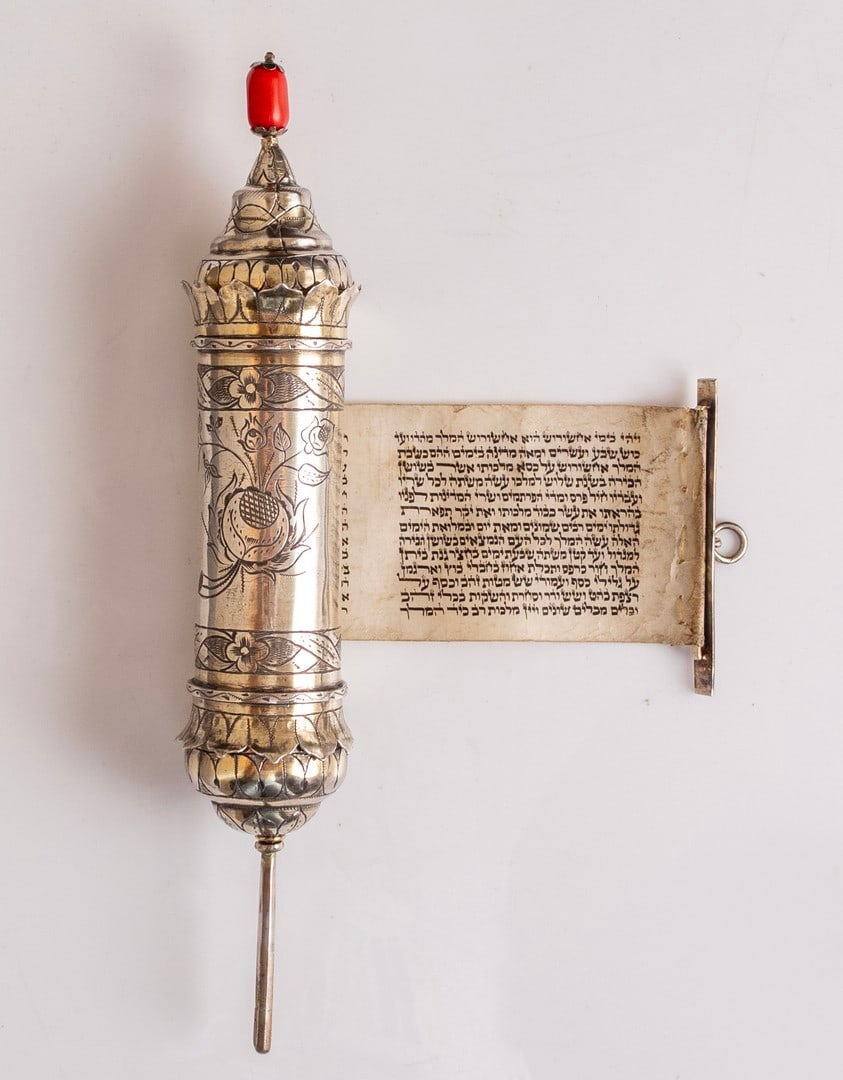 ויהי בימי אחשורוש הוא אחשורוש המלך מהדו ועד
כוש שבע ועשרים ומאה מדינה בימים ההם כשבת
המלך אחשורוש על כסא מלכותו אשר בשושן
הבירה בשנת שלוש למלכו עשה משתה לכל שריו
ועבדיו חיל פרס ומדי הפרתמים ושרי המדינות לפניו
בהראתו את עשר כבוד מלכותו ואת יקר תפארת
גדולתו ימים רבים שמונים ומאת יום ובמלואת הימים
האלה עשה המלך לכל העם הנמצאים בשושן הבירה
למגדול ועד קטן משתה שבעת ימים בחצר גנת ביתן
המלך חור כרפס ותכלת אחוז בחבלי בוץ וארגמן
על גלילי כסף ועמודי שש מטות זהב וכסף על
רצפת בהט ושש ודר וסחרת והשקות בכלי זהב
וכלים מכלים שונים ויין מלכות רב כיד המלך